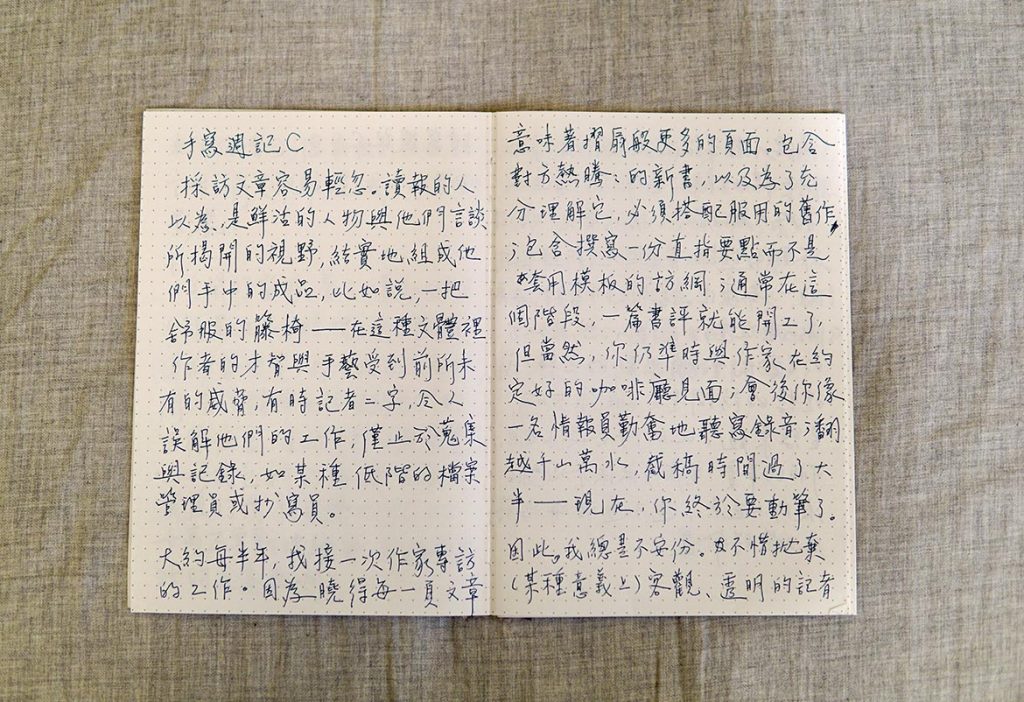 手寫週記C
採訪文章容易輕忽。讀報的人
以為,是鮮活的人物與他們言談
所揭開的視野,結實地組成他
們手中的成品,比如說,一把
舒服的籐椅——在這種文體裡
作者的才智與手藝受到前所未
有的威脅,有時記者二字,令人
誤解他們的工作,僅止於蒐集
與記錄,如某種低階的檔案
管理員或抄寫員。
大約每半年,我接一次作家專訪
的工作。因為曉得每一頁文章
意味著摺扇般更多的頁面。包含
對方熱騰騰的新書,以及為了充
分理解它,必須搭配服用的舊作
;包含撰寫一份直指要點而不是
套用模板的訪綱;通常在這
個階段,一篇書評就能開工了,
但當然,你仍準時與作家在約
定好的咖啡廳見面;會後你像
一名情報員勤奮地聽寫錄音;翻
越千山萬水,截稿時間過了大
半——現在,你終於要動筆了。
因此。我總是不安份。不惜拋棄
(某種意義上)客觀、透明的記者